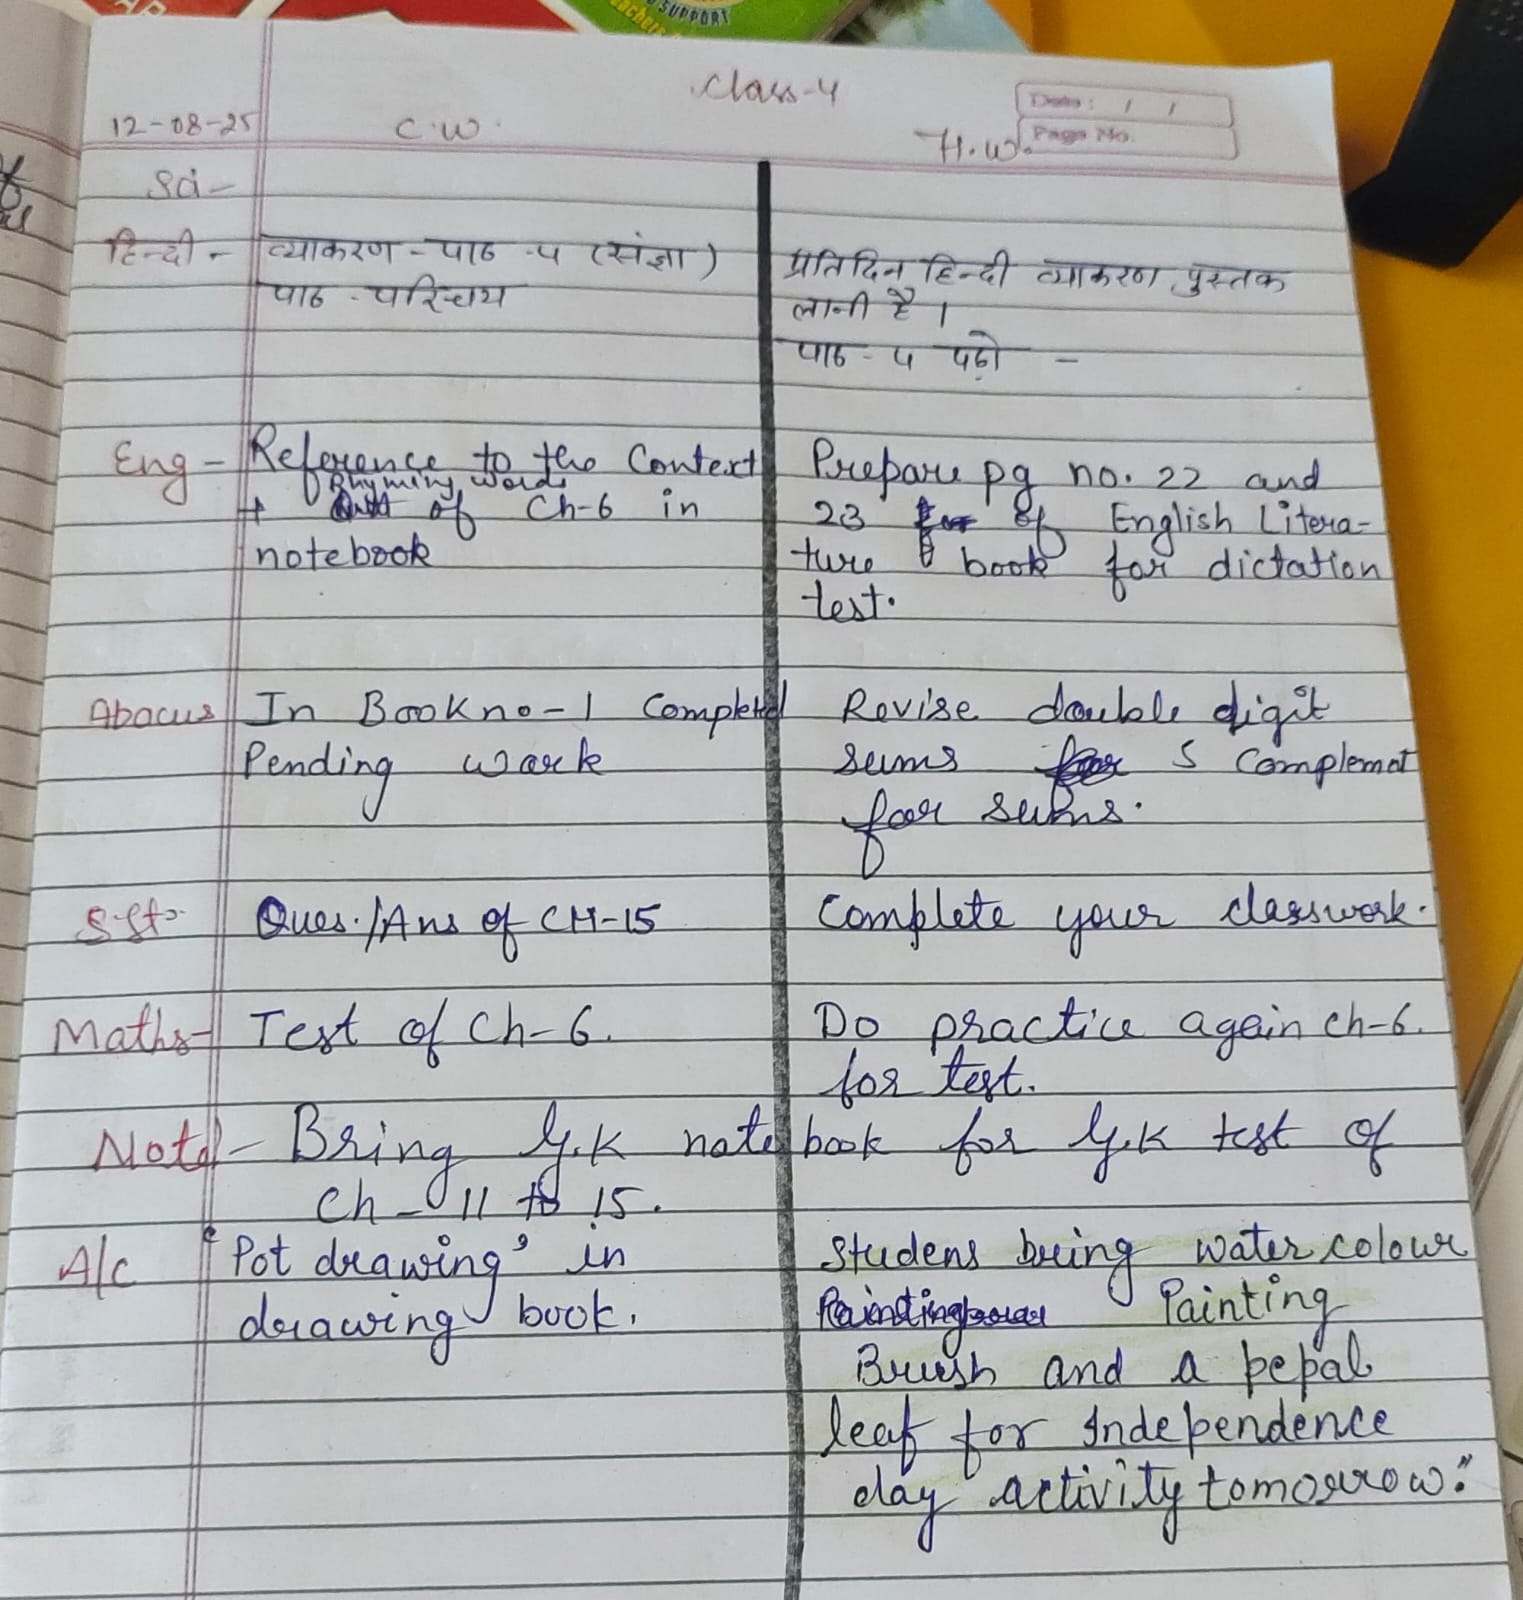 SUPPORT
Teachers
Class-4
Date: / /
Page No.
12-08-25 C.W. H.W.
Sci-
हिन्दी - व्याकरण - पाठ - 5 (संज्ञा)
पाठ - परिचय
प्रतिदिन हिन्दी व्याकरण पुस्तक
लानी है।
पाठ - 5 पढ़ो -
Eng - Reference to the Context
Rhyming words
+ of Ch-6 in
notebook
Prepare pg no. 22 and
23 of English Litera-
ture book for dictation
test.
Abacus In Book no-1 Completed
Pending work
Revise double digit
sums 5 Complemat
for sums.
S.St. Ques./Ans of CH-15
Complete your classwork.
Maths- Test of Ch-6.
Do practice again ch-6.
for test.
Note- Bring G.K notebook for G.K test of
Ch-11 to 15.
A/c 'Pot drawing' in
drawing book.
Studens bring water colour
Painting
Brush and a pepal
leaf for Independence
day activity tomorrow."